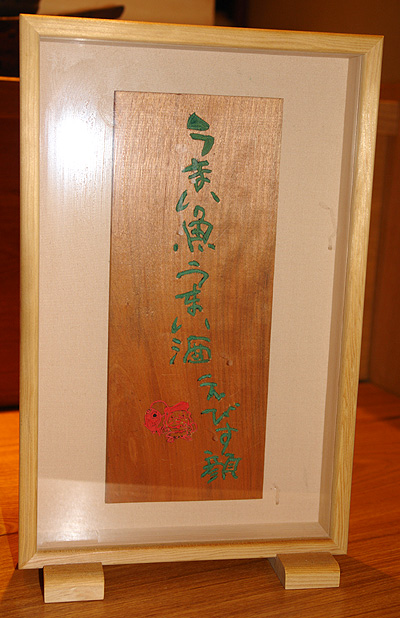 うまい魚うまい酒えびす顔